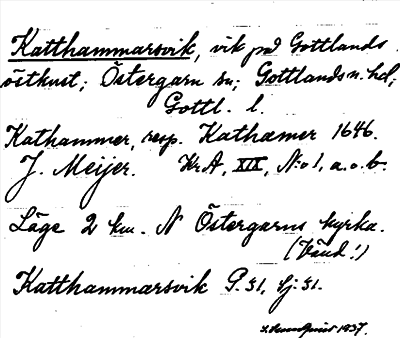 Katthammarsvik, vik på Gottlands
östkust; Östergarn sn; Gottlands n. hd;
Gottl. l.
Kathammer, resp. Kathamer 1646.
J. Meijer. KrA, XIX, N:o 1, a. o. b.
Läge 2 km. N Östergarns kyrka.
(Vänd!)
Katthammarsvik P. 31, Sj: 31.
1937.